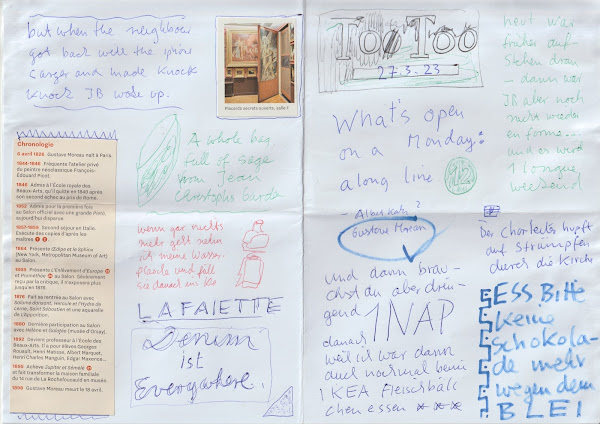 but when the neighbour
got back with the iphone
carger and made knock
knock JB woke up.
Placards secrets ouverts, salle 7
Chronologie
6 avril 1826 Gustave Moreau naît à Paris.
1844-1846 Fréquente l'atelier privé
du peintre néoclassique François-
Édouard Picot.
1846 Admis à l'École royale des
Beaux-Arts, qu'il quitte en 1849 après
son second échec au prix de Rome.
1852 Admis pour la première fois
au Salon officiel avec une grande Pietà,
aujourd'hui disparue.
1857-1859 Second séjour en Italie.
Exécute des copies d'après les
maîtres
1864 Présente Œdipe et le Sphinx
(New York, Metropolitan Museum of Art)
au Salon.
1869 Présente L'Enlèvement d'Europe
et Prométhée au Salon. Sévèrement
reçu par la critique, il n'exposera plus
jusqu'en 1876.
1876 Fait sa rentrée au Salon avec
Salomé dansant, Hercule et l'Hydre de
Lerne, Saint Sébastien et une aquarelle
de L'Apparition.
1880 Dernière participation au Salon
avec Hélène et Galatée (musée d'Orsay).
1892 Devient professeur à l'École
des Beaux-Arts. Il a pour élèves Georges
Rouault, Henri Matisse, Albert Marquet,
Henri Charles Manguin, Edgar Maxence...
1895 Achève Jupiter et Sémélé
et fait transformer la maison familiale
du 14 rue de La Rochefoucauld en musée.
1898 Gustave Moreau meurt le 18 avril.
A whole bag
full of sage
from Jean
Christophe Garden
wenn gar nichts
mehr geht nehm
ich meine Wasser-
flasche und füll
sie danach ins Klo
LAFAIETTE
Denim
ist
Everywhere.
Too Too
27.3.23
What's open
on a Monday?
along line
12
- Albert Kahn?
Gustave Moreau
und dann brau-
chst du aber drin-
gend 1 NAP
danach
weil ich war dann
auch nochmal beim
IKEA Fleischbäll
chen essen
heut war
früher auf-
stehen dran
- dann war
JB aber noch
nicht wieder
en forme...
und es wird
1 longue
weekend
Der Charles hupft
auf Strümpfen
durch die Kirche
ESS Bitte
keine
schokola-
de mehr
wegen dem
BLEI